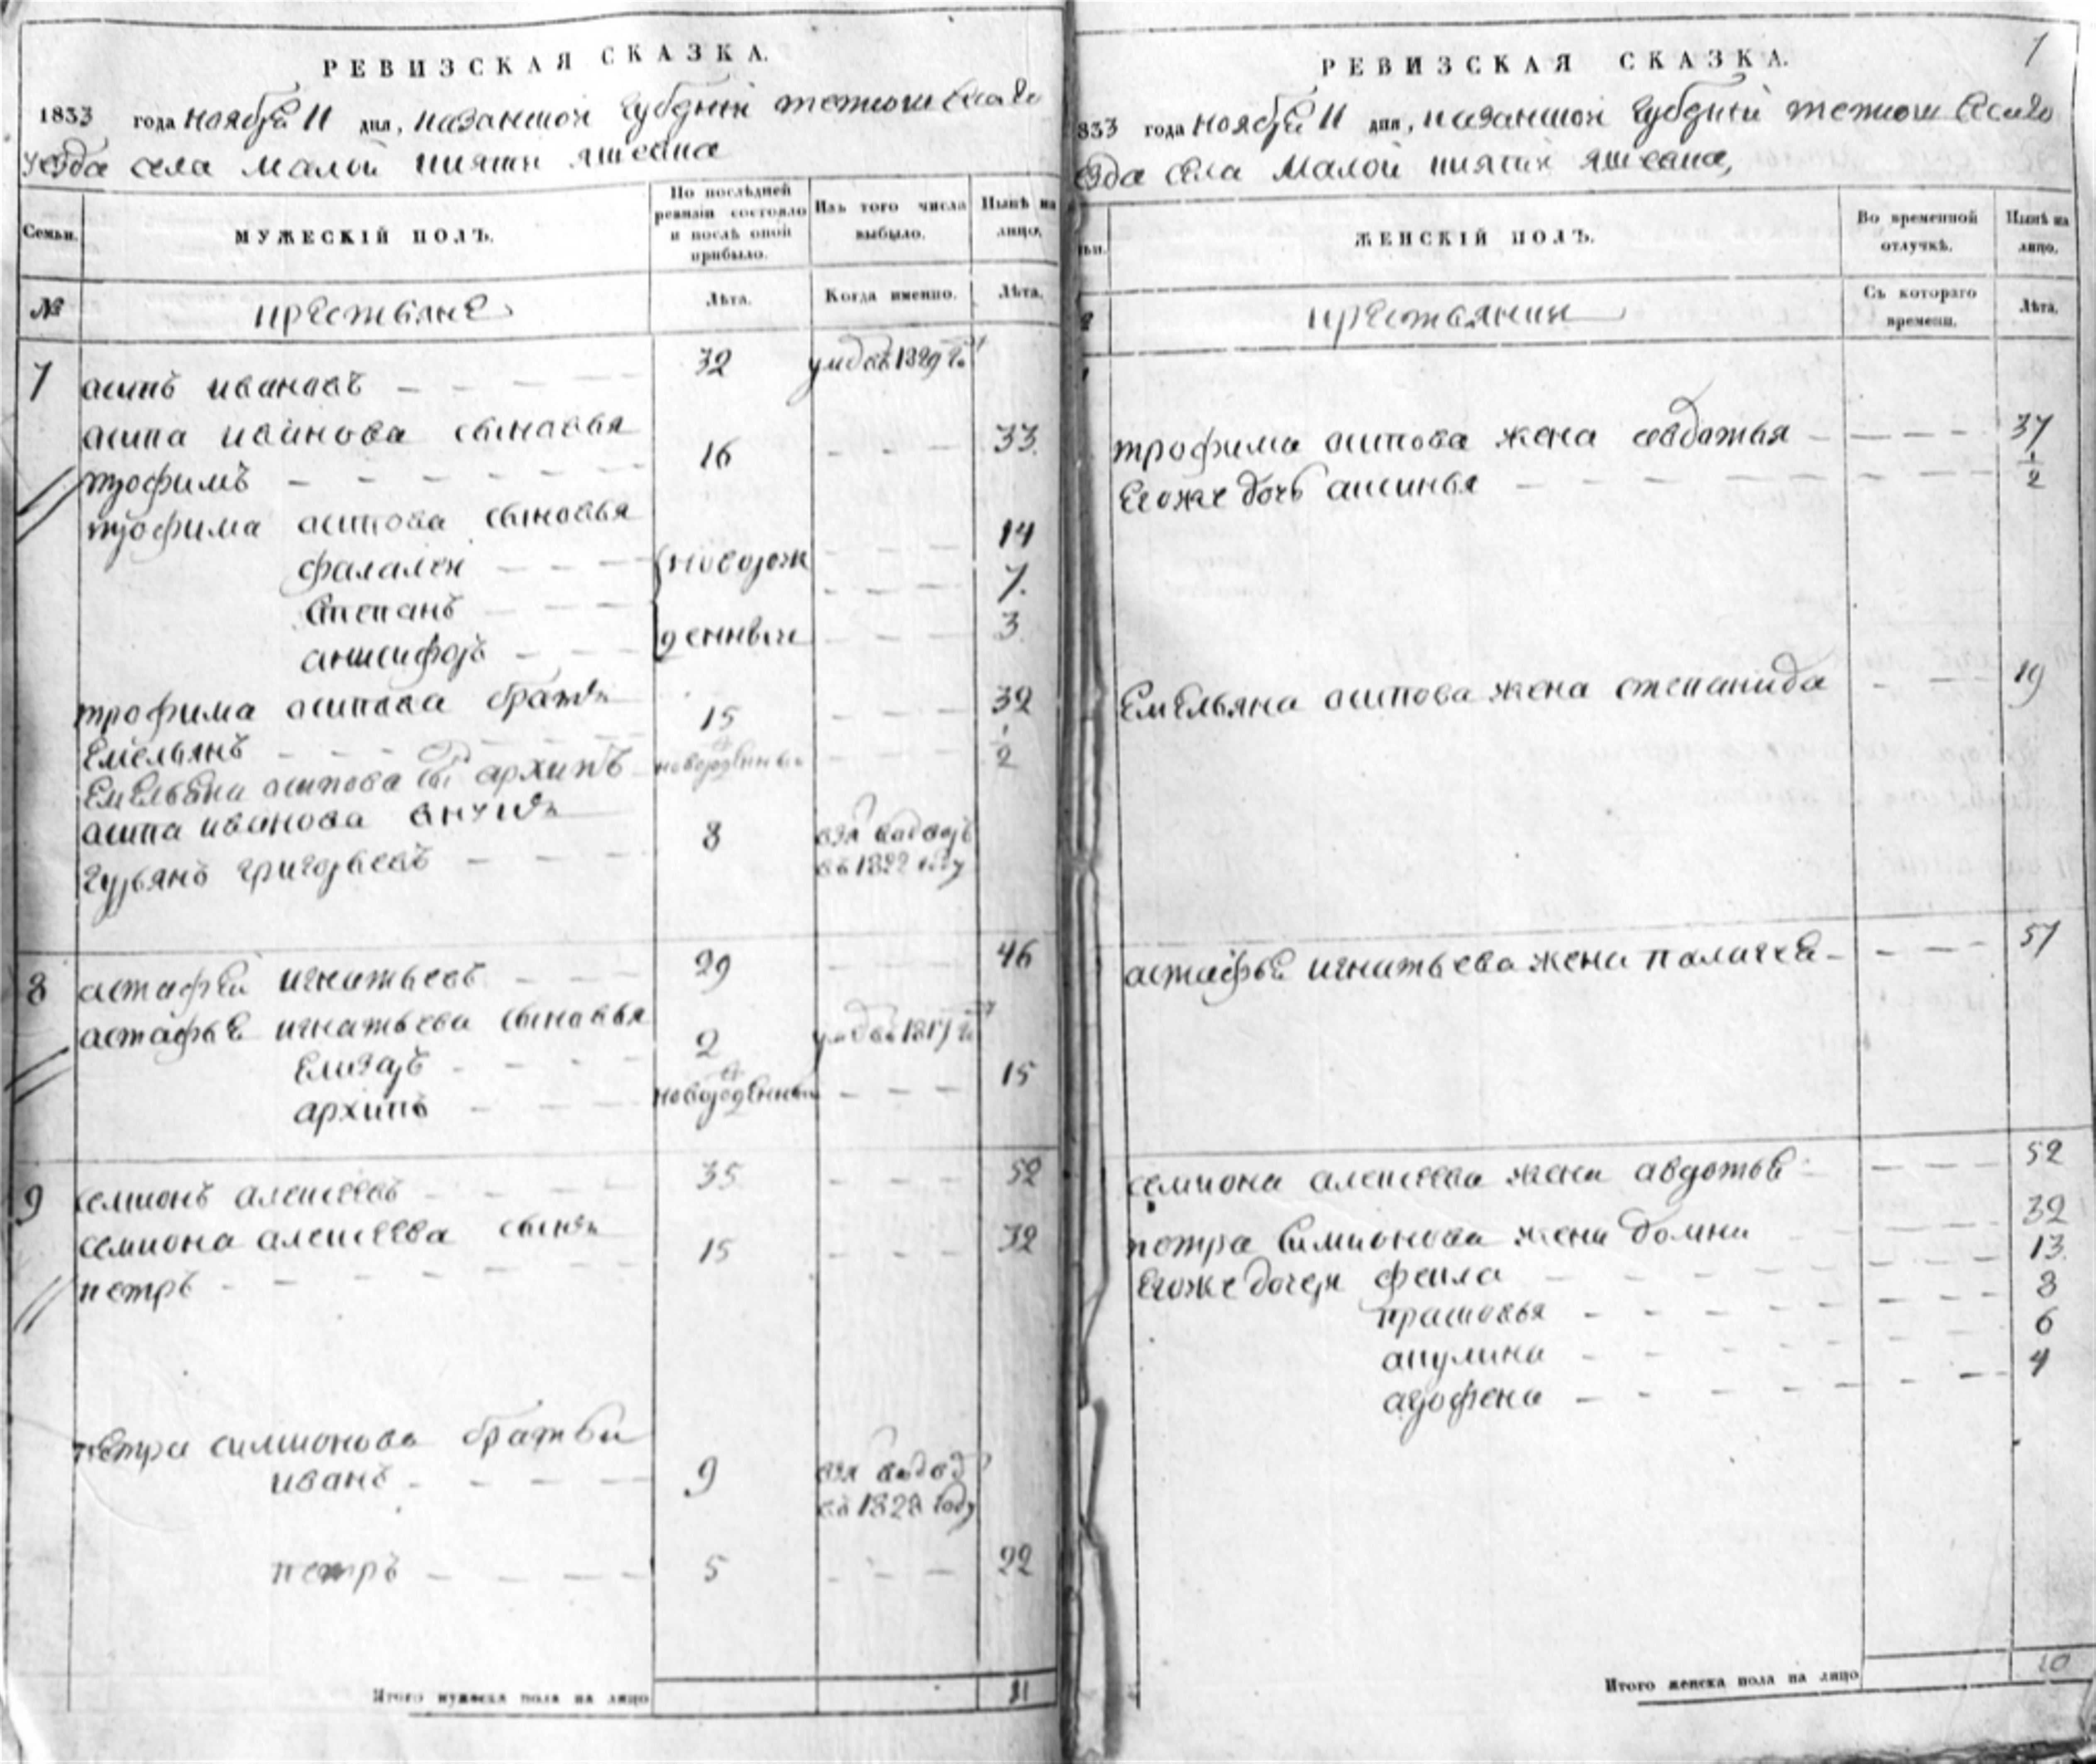 РЕВИЗСКАЯ СКАЗКА.
1833 года ноября 11 дня, казанской губернии тетюшскаго
уезда села малой
Семьи.
МУЖЕСКІЙ ПОЛЪ.
По послѣдней ревизіи состояло и послѣ оной прибыло.
Изъ того числа выбыло.
Нынѣ на лицо.
№
крестьяне
Лѣта.
Когда именно.
Лѣта.
7 осипъ ивановъ 32 1829
осипа иванова сыновья
трофимъ 16 33
трофима осипова сыновья
фалалеи новорож 14
степанъ 7
денныи 3
трофима осипова братъ
емельянъ 15 32
емельяна осипова сынъ архипъ новорожденный 1/2
осипа иванова внукъ
гурьянъ григорьевъ 8
въ 1822 году
8 астафей игнатьевъ 29 46
астафье игнатьева сыновья
елизаръ 2
архипъ новорожденный 15
9 семионъ алексеевъ 35 52
семиона алексеева сынъ
петръ 15 32
петра симионова братьи
иванъ 9
въ 1828 году
петръ 5 22
Итого мужеска пола на лицо 11
7
РЕВИЗСКАЯ СКАЗКА.
833 года ноября 11 дня, казанской губернии тетюшскаго
езда села малой
ЖЕНСКІЙ ПОЛЪ.
Во временной отлучкѣ.
Нынѣ на лицо.
Съ котораго времени.
Лѣта.
трофима осипова жена 37
егоже дочь аксинья 1/2
емельяна осипова жена степанида 19
астафье игнатьева жена палагее 51
семиона алексеева жена авдотье 52
петра симионова жена домна 32
егоже дочери фекла 13
прасковья 8
акулина 6
4
Итого женска пола на лицо 10